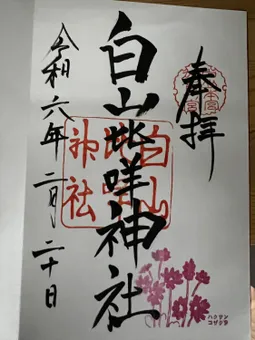 奉拝
白山比咩神社
令和六年二月二十日
白山
比咩
神社
ハクサン
コザクラ